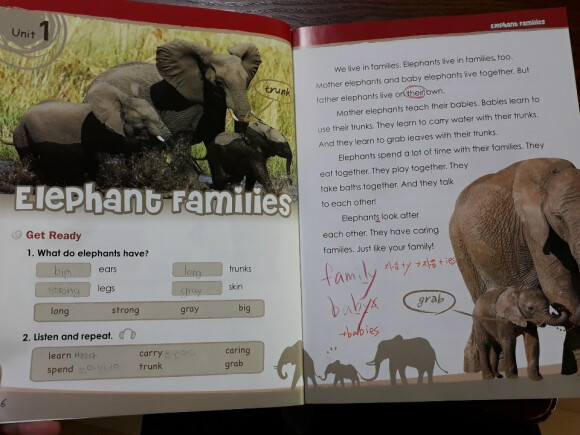 Unit 1
trunk
Elephant Families
Get Ready
1. What do elephants have?
big ears long trunks
strong legs gray skin
long strong gray big
2. Listen and repeat.
learn carry caring
spend trunk grab
6
Elephant Families
We live in families. Elephants live in families, too.
Mother elephants and baby elephants live together. But
father elephants live on their own.
Mother elephants teach their babies. Babies learn to
use their trunks. They learn to carry water with their trunks.
And they learn to grab leaves with their trunks.
Elephants spend a lot of time with their families. They
eat together. They play together. They
take baths together. And they talk
to each other!
Elephants look after
each other. They have caring
families. Just like your family!
family
baby
→babies
grab